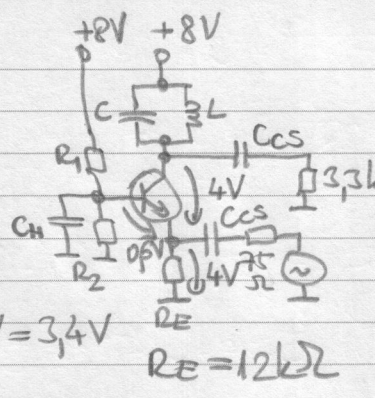 +8V +8V
C L
R1 CCS
4V 3,3k
CH CCS
R2 0,6V 4V 75 Ω
RE
=3,4V
RE=12kΩ